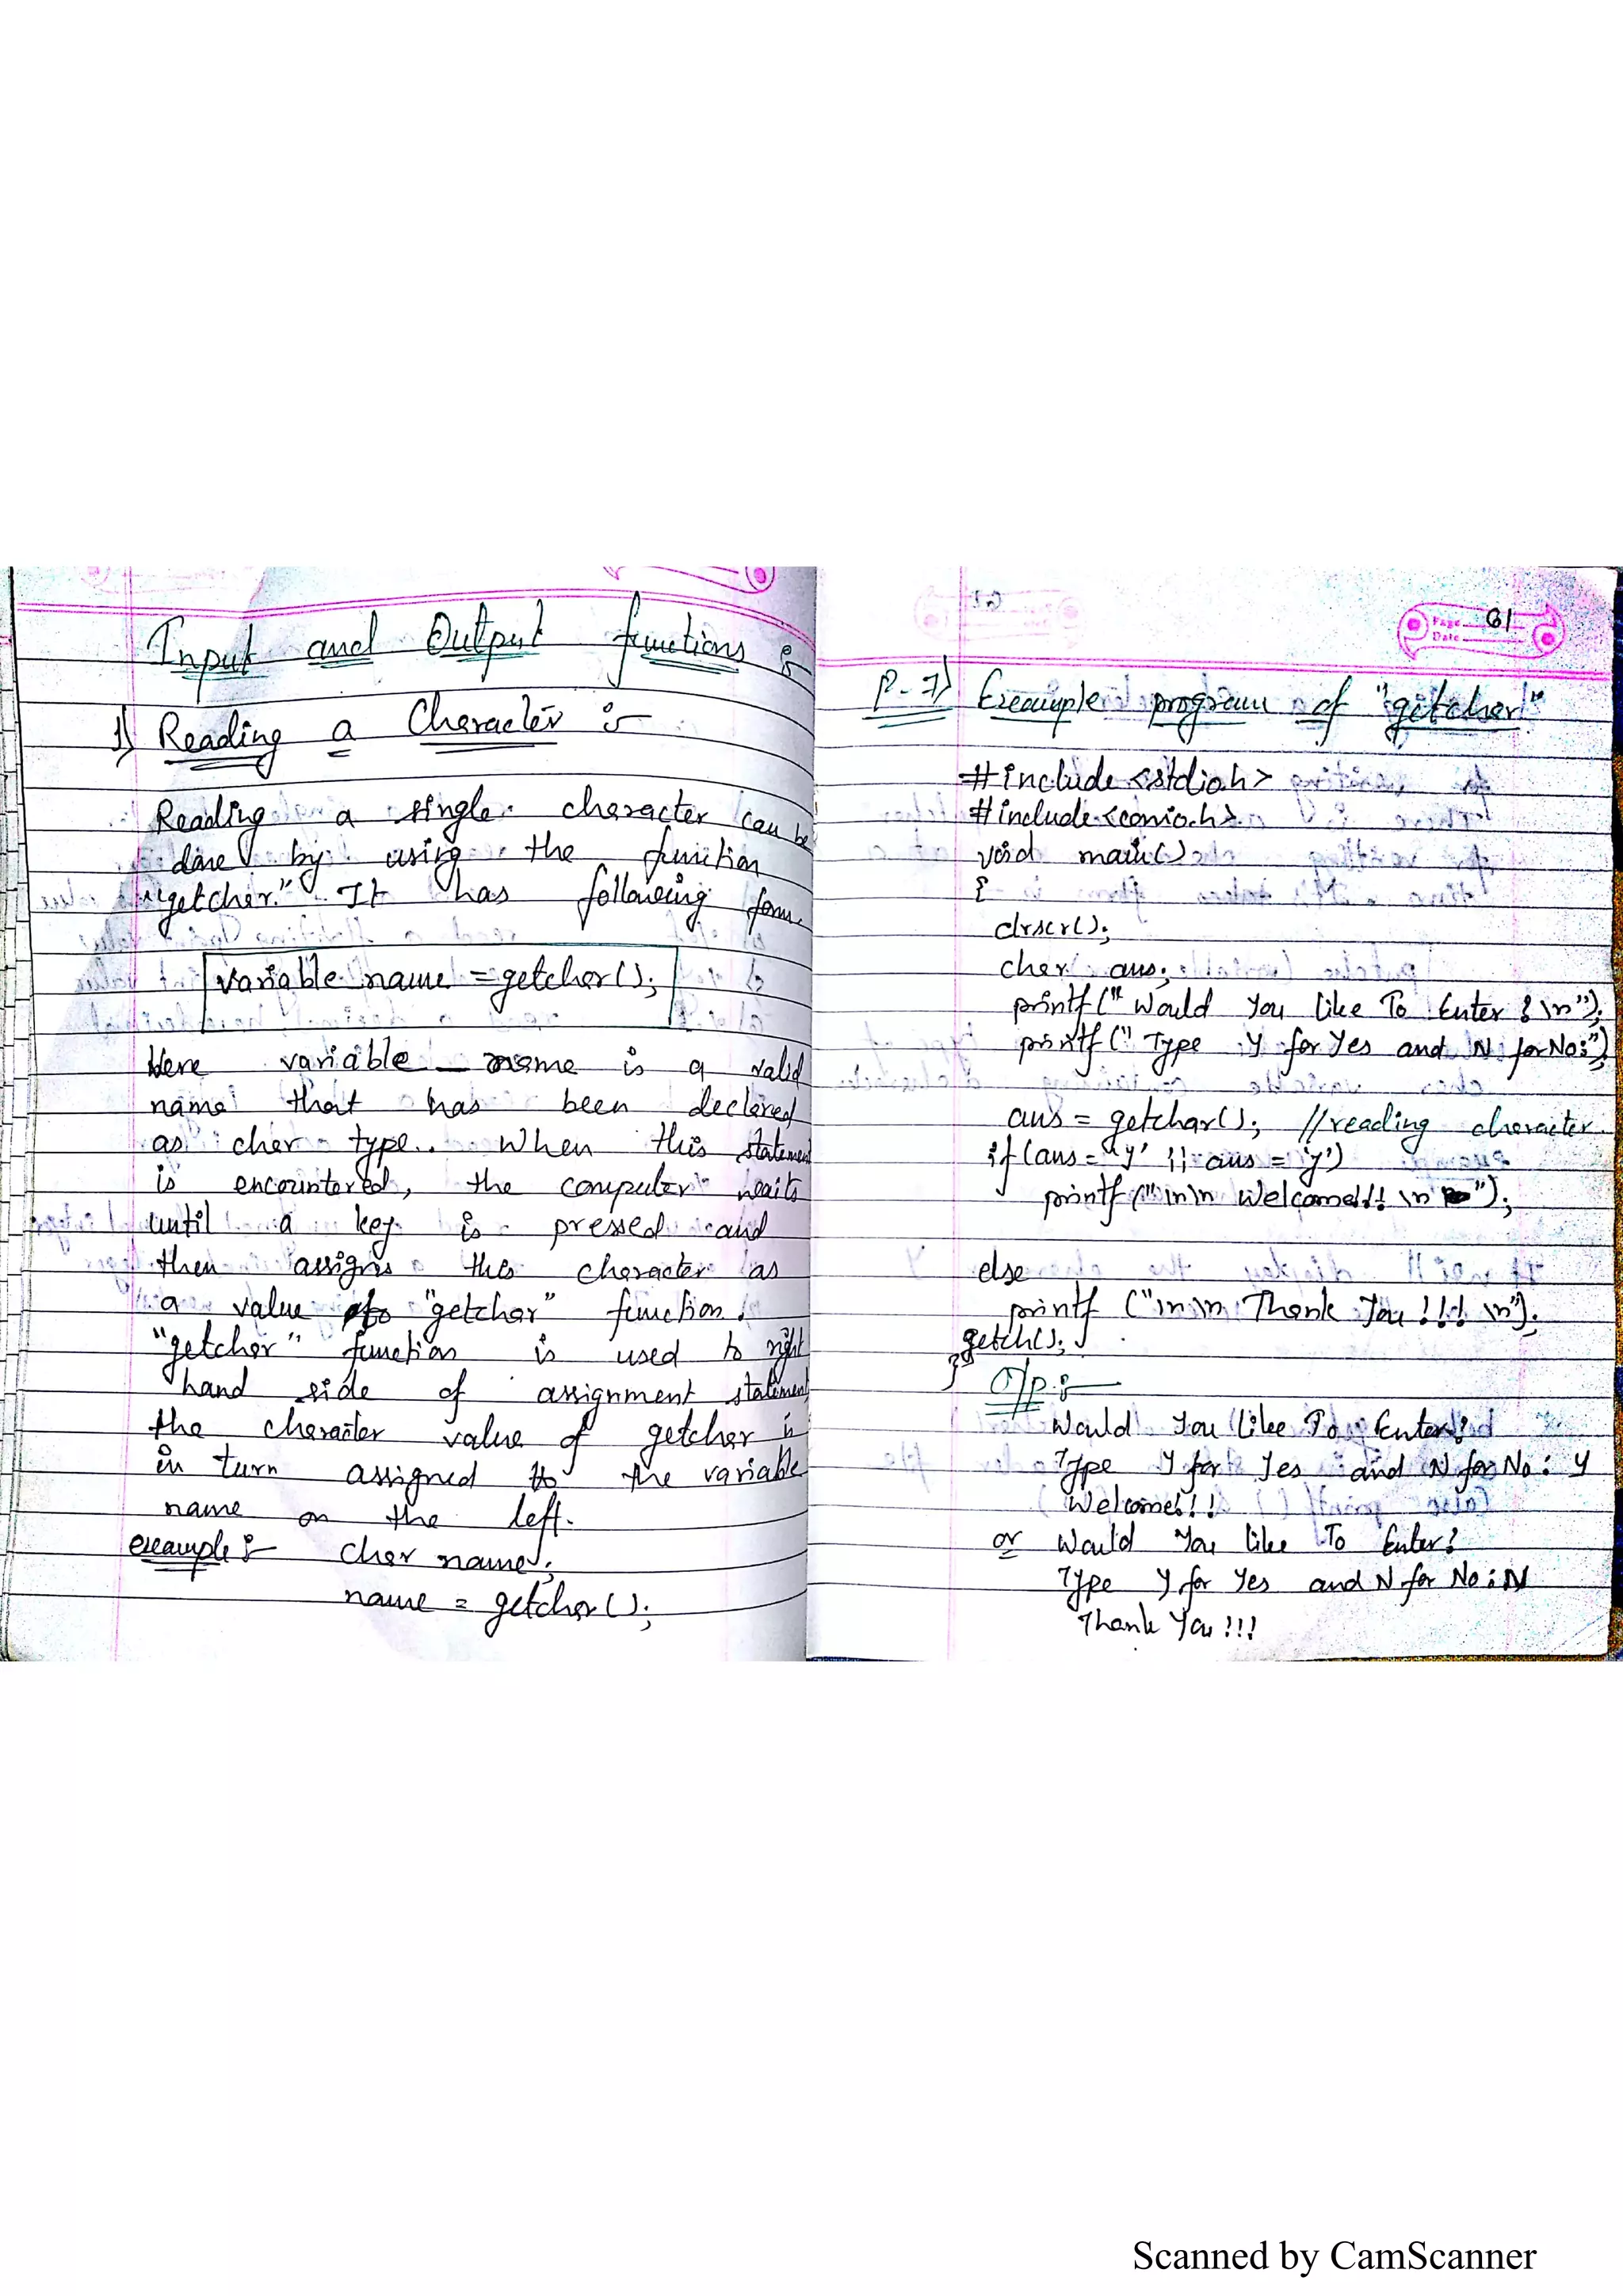 Input and Output functions :-
1) Reading a Character :-
Reading a single character can be
done by using the function
"getchar." It has following form.
variable name = getchar();
Here variable_name is a valid
name that has been declared
as char type. When this statement
is encountered, the computer waits
until a key is pressed and
then assigns this character as
a value to "getchar" function.
"getchar" function is used to right
hand side of assignment statement
the character value of getchar is
in turn assigned to the variable
name on the left.
example :- char name;
name = getchar();
Page 61
Date
P-7) Example program of "getchar"
#include <stdio.h>
#include <conio.h>
void main()
{
clrscr();
char ans;
printf(" Would You Like To Enter ? \n");
printf(" Type Y for Yes and N for No:");
ans = getchar(); //reading character
if (ans = 'y' || ans = 'y')
printf("\n\n Welcome!!! \n");
else
printf ("\n\n Thank You !!! \n");
getch();
}
O/p :-
Would You Like To Enter?
Type Y for Yes and N for No : Y
Welcome!!!
or Would You Like To Enter?
Type Y for Yes and N for No : N
Thank You !!!
Scanned by CamScanner